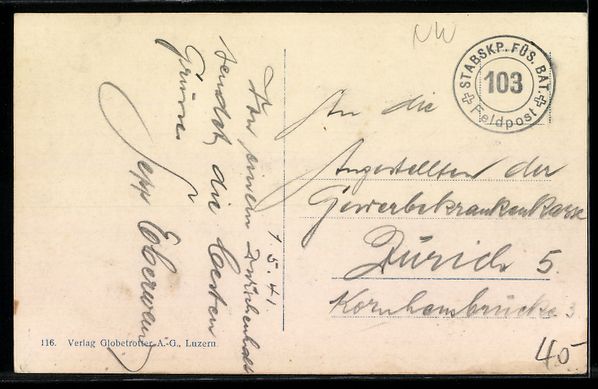 NW
STABSKP. FÜS. BAT.
103
Feldpost
1.5.41.
Von einem
sendet die besten
Grüsse
Sepp
An die
Angestellten der
Gewerbekrankenkasse
Zürich 5.
Kornhausbrücke 3
40.-
116. Verlag Globetrotter A.-G., Luzern.